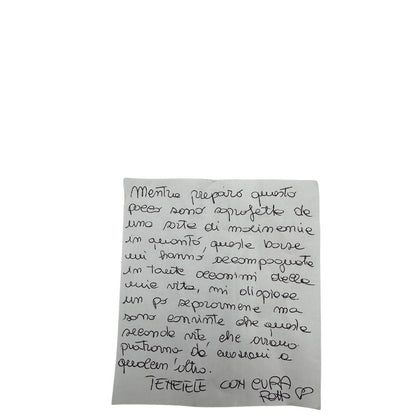 Mentre preparo questo
pacco sono sopraffatta da
una sorta di malinconia
in quanto, queste borse
mi hanno accompagnata
in tante occasioni della
mia vita, mi dispiace
un po separarmene ma
sono convinta che questa
seconda vita che
potranno da a
qualcun'altro.
TENETELE CON CURA